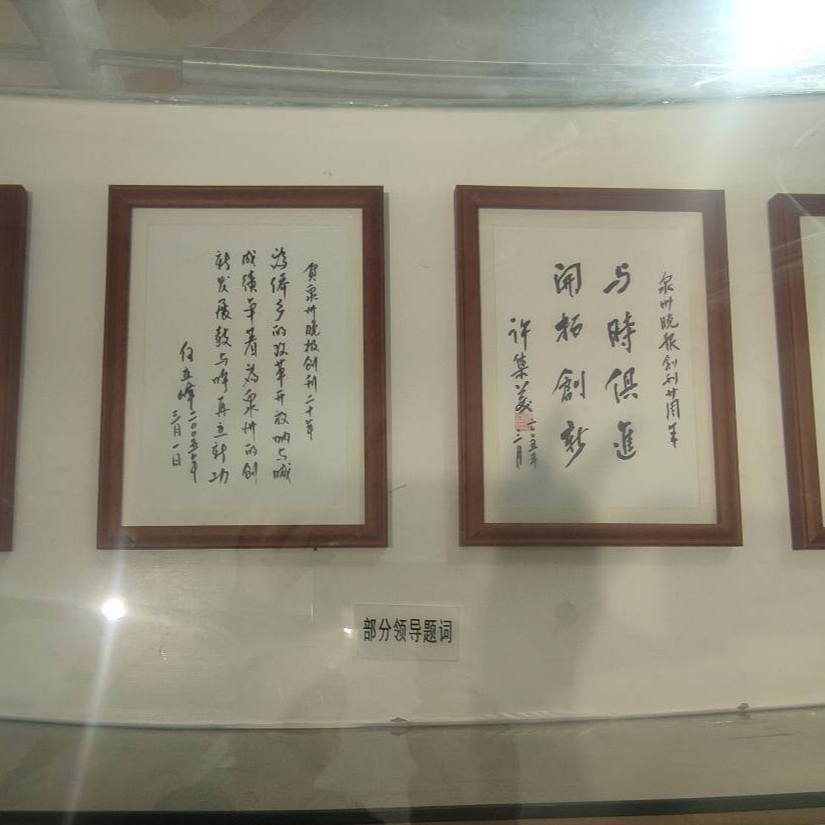 贺泉州晚报创刊二十年
为侨乡的改革开放呐与喊
成绩卓著为泉州的创
新发展鼓与呼再立新功
何立峰二〇〇五年
三月一日
泉州晚报创刊廿周年
与時俱進
開拓創新
许集美
二月
部分领导题词